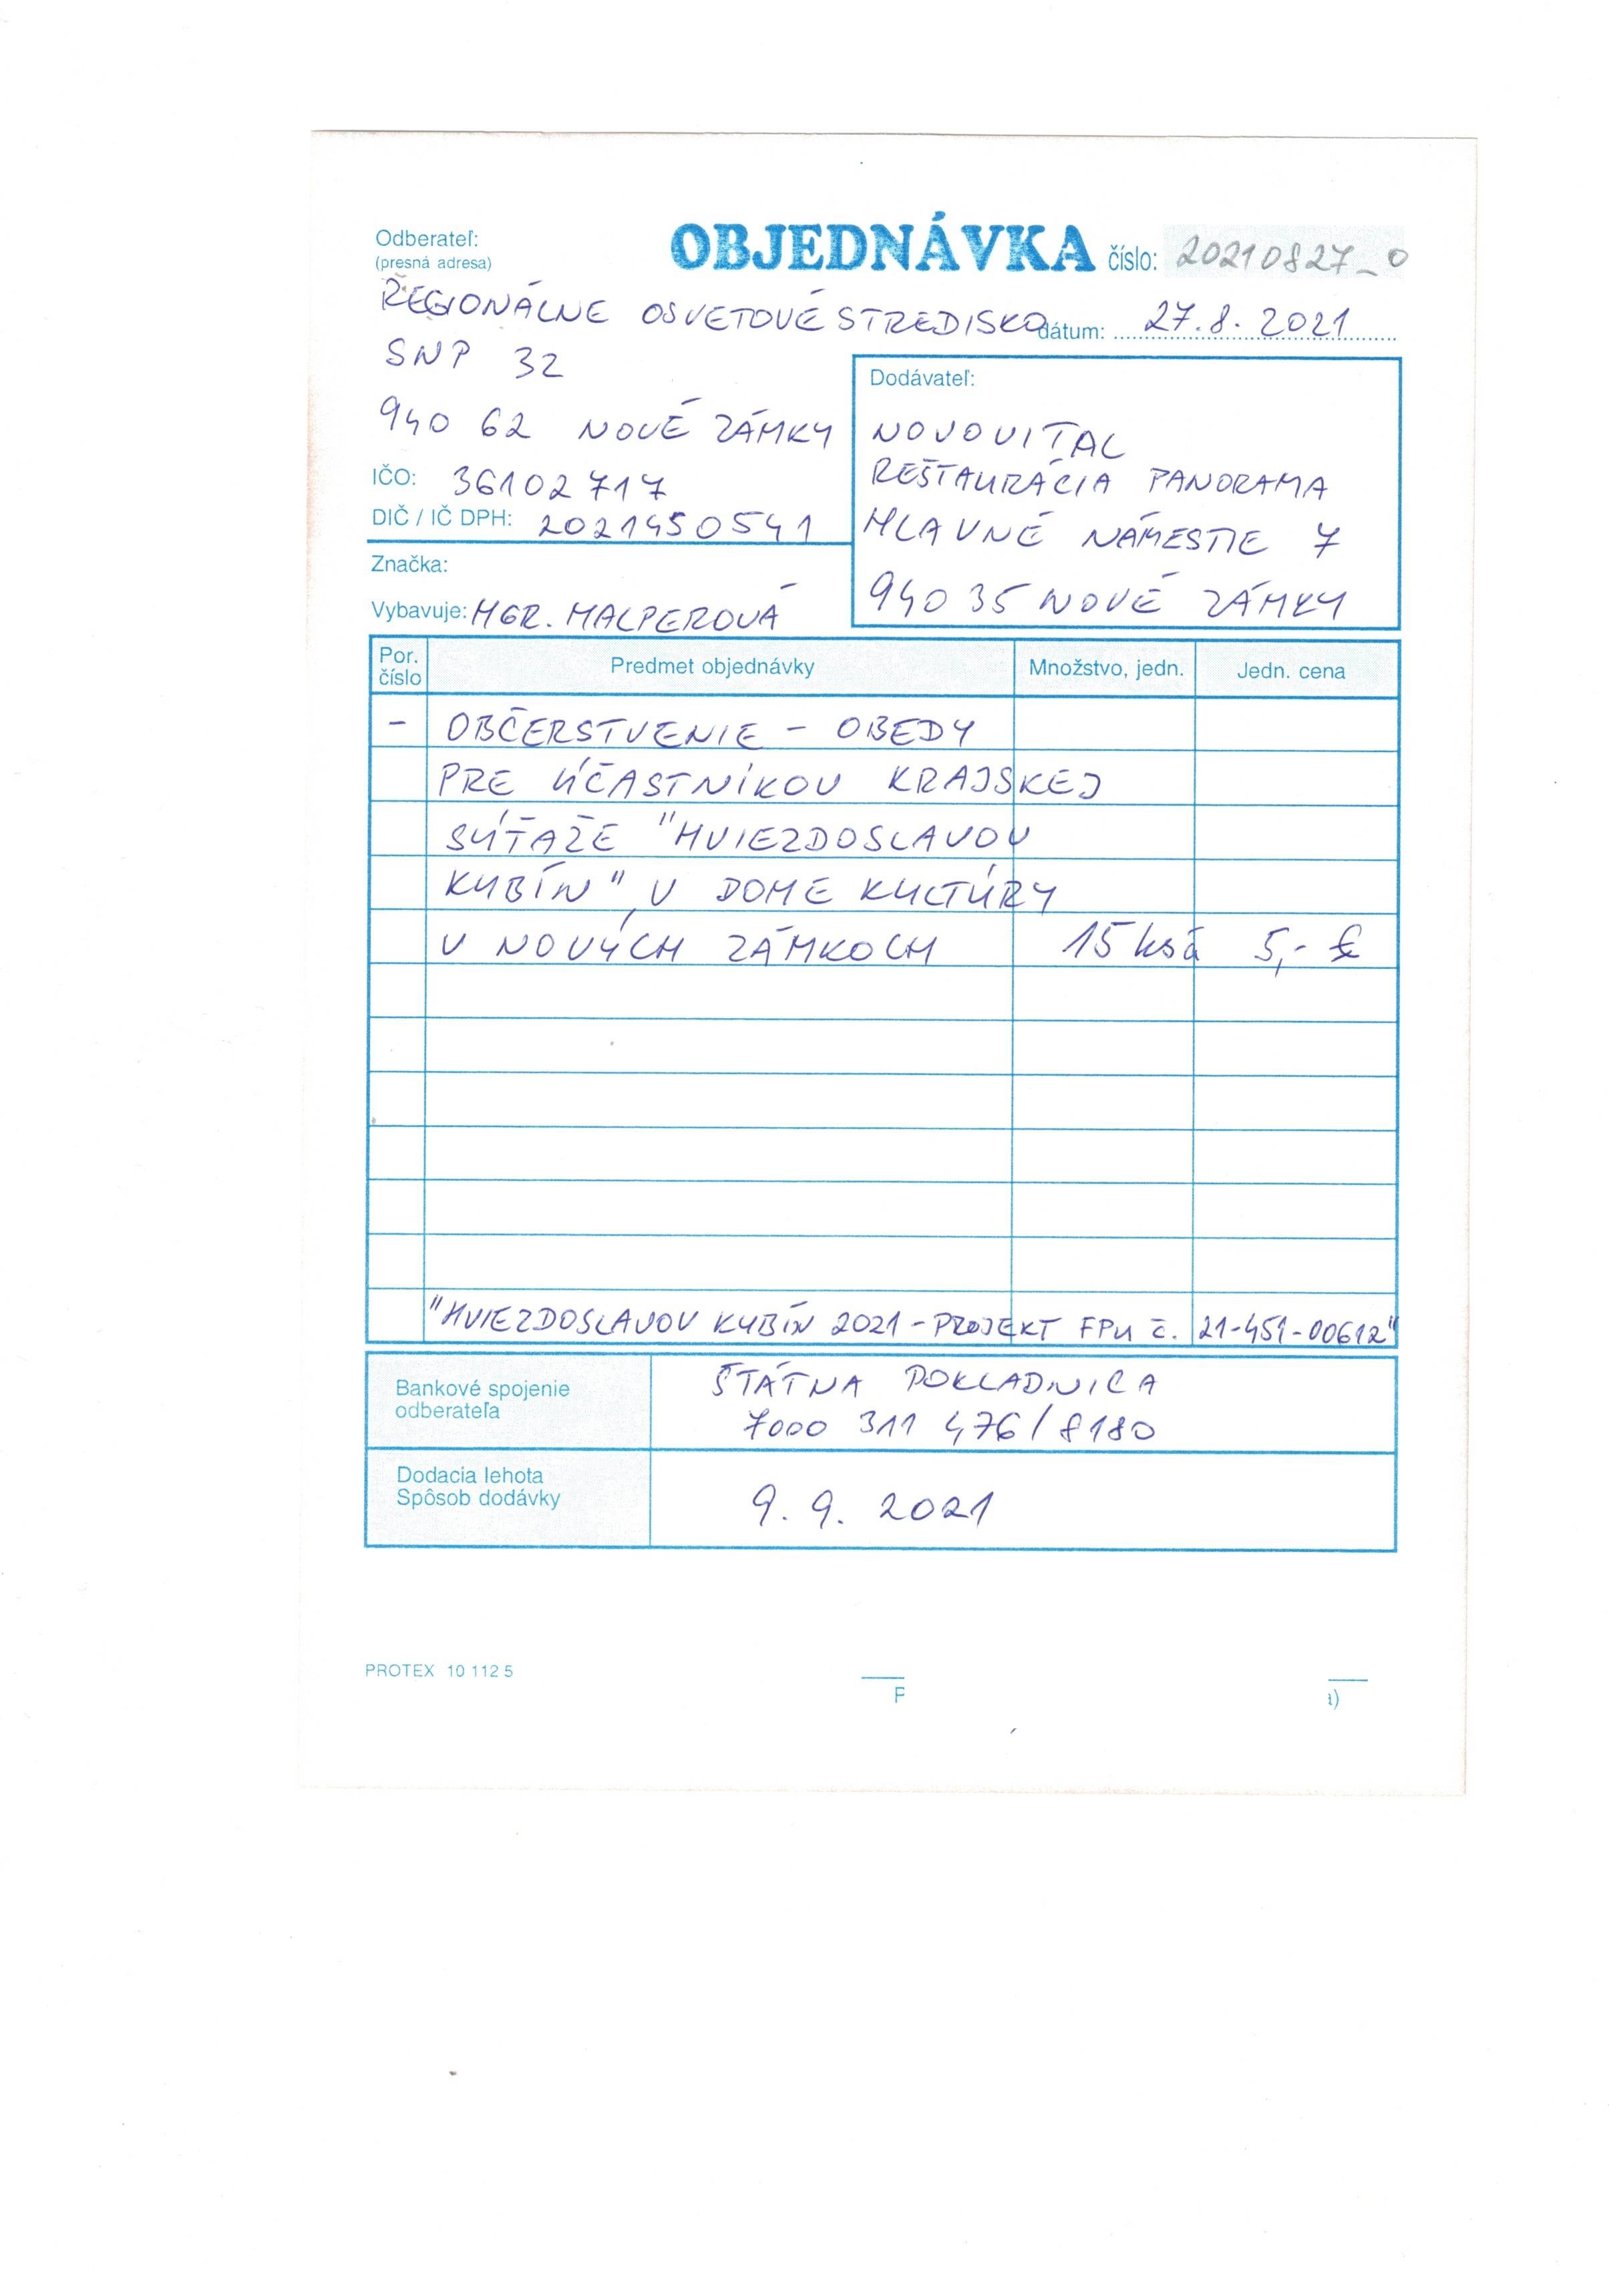 Odberateľ:
(presná adresa)
OBJEDNÁVKA číslo: 20210827_0
REGIONÁLNE OSVETOVÉ STREDISKO
dátum: 27.8. 2021
SNP 32
940 62 NOVÉ ZÁMKY
IČO: 36102717
DIČ / IČ DPH: 2021450541
Značka:
Vybavuje: MGR. MALPEROVÁ
Dodávateľ:
NOVOVITAL
REŠTAURÁCIA PANORAMA
HLAVNÉ NÁMESTIE 7
940 35 NOVÉ ZÁMKY
Por. číslo Predmet objednávky Množstvo, jedn. Jedn. cena
- OBČERSTVENIE - OBEDY
PRE ÚČASTNÍKOV KRAJSKEJ
SÚŤAŽE "HVIEZDOSLAVOV
KUBÍN", V DOME KULTÚRY
V NOVÝCH ZÁMKOCH 15 ks à 5,- €
"HVIEZDOSLAVOV KUBÍN 2021 - PROJEKT FPU č. 21-451-00612"
Bankové spojenie
odberateľa
ŠTÁTNA POKLADNICA
7000 311 476/8180
Dodacia lehota
Spôsob dodávky
9. 9. 2021
PROTEX 10 112 5